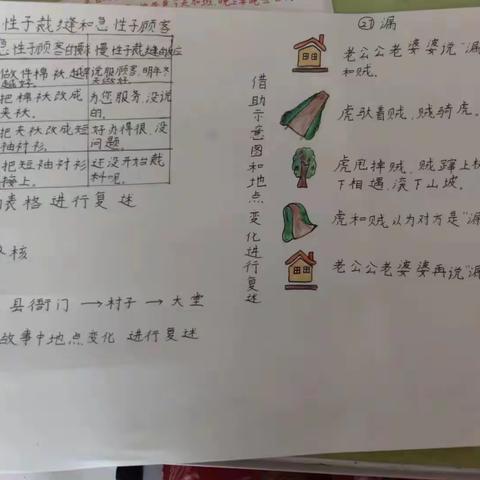 性子裁缝和急性子顾客
急性子顾客的要求 慢性子裁缝的反应
做件棉袄，越早越好。 说服顾客，明年冬天做好。
把棉袄改成夹袄。 为您服务，没说的。
把夹袄改成短袖衬衫。 好办得很，没问题。
把短袖衬衫接上。 还没开始裁料呢。
表格进行复述
核
县衙门→村子→大堂
故事中地点变化 进行复述
借助示意图和地点变化进行复述
㉗漏
老公公老婆婆说"漏
和贼。
虎驮着贼，贼骑虎。
虎甩摔贼，贼蹿上树
下相遇，滚下山坡。
虎和贼认为对方是"漏
老公公老婆婆再说"漏